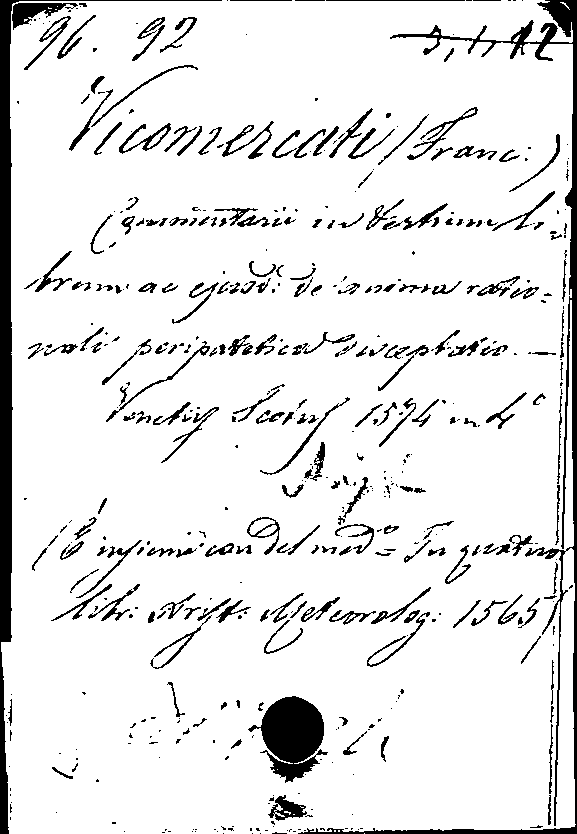 96. 92 3, 1, 12
Vicomercati (Franc:)
Commentarii in tertium li=
brum ac ejusd: de anima ratio=
nali peripatetica disceptatio. —
Venetiis Scotus 1574 in 4°
(È insieme con del med° = In quatuor
libr: Arist: Meteorolog: 1565)